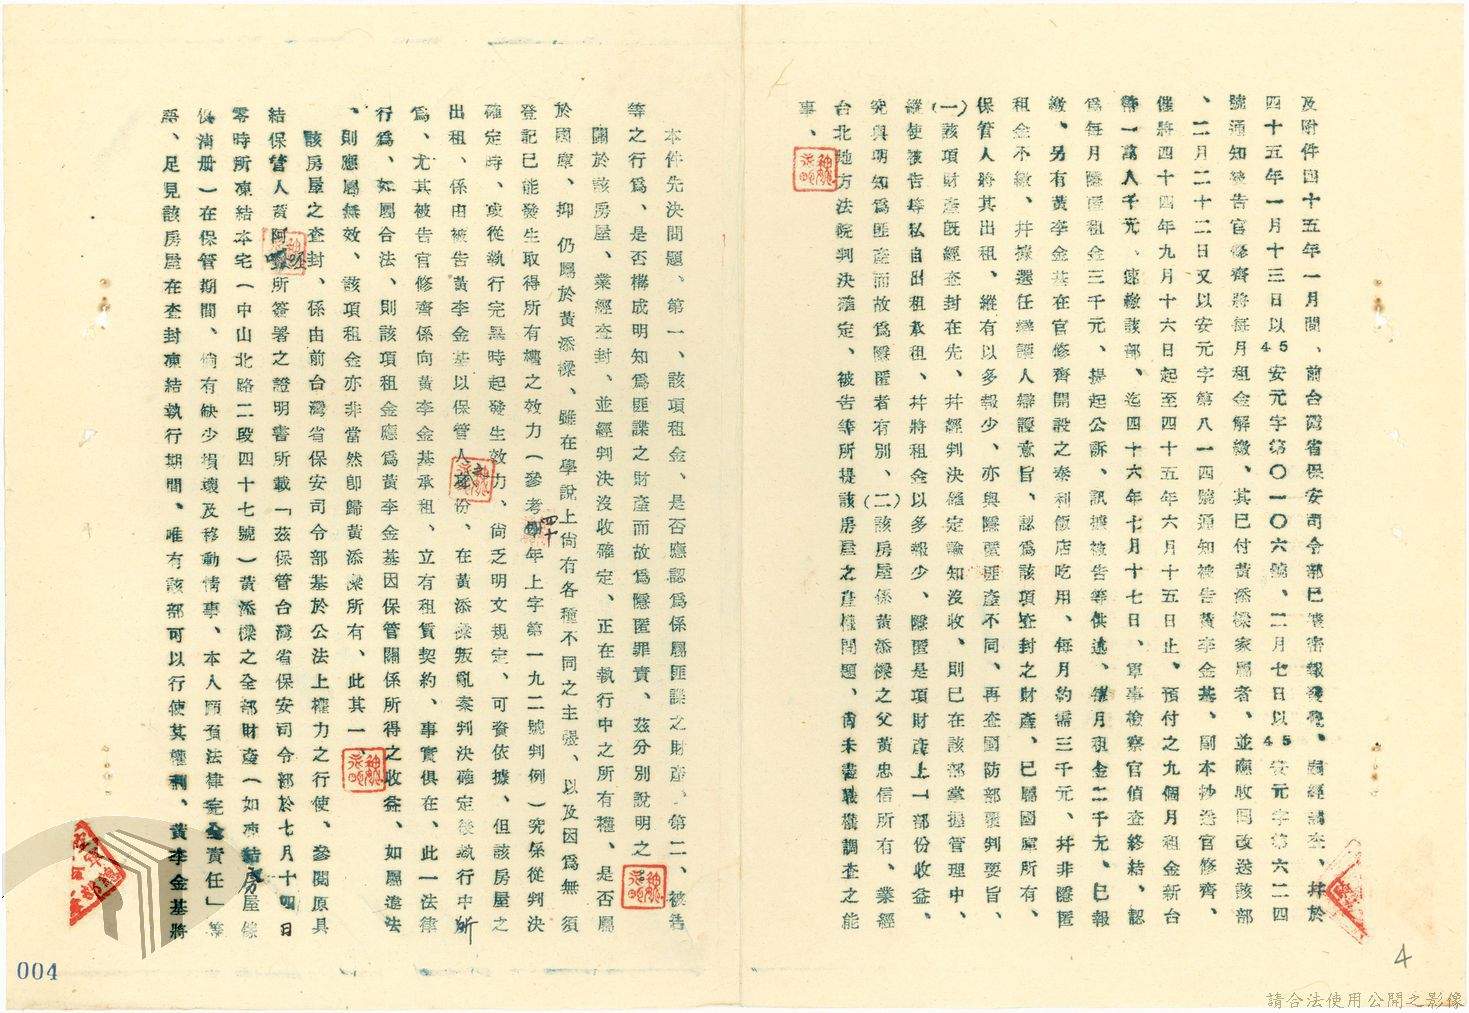 及附件四十五年一月間、前台灣省保安司令部已據密報發覺、嗣經調查、幷於
四十五年一月十三日以45安元字第〇一〇六號、二月七日以45安元字第六二四
號通知被告官修齊將每月租金解繳、其已付黃添樑家屬者、並應收回改送該部
、二月二十二日又以安元字第八一四號通知被告黃李金基、副本抄送官修齊、
催將四十四年九月十六日起至四十五年六月十五日止、預付之九個月租金新台
幣一萬八千元、速繳該部、迄四十六年七月十七日、軍事檢察官偵查終結、認
爲每月隱匿租金三千元、提起公訴、訊據被告等供述、每月租金二千元、已報
繳、另有黃李金基在官修齊開設之泰利飯店吃用、每月約需三千元、幷非隱匿
租金不繳、幷據選任辯護人辯護意旨、認爲該項查封之財產、已屬國庫所有、
保管人將其出租、縱有以多報少、亦與隱匿匪產不同、再查國防部覆判要旨、
(一)該項財產旣經查封在先、幷經判決確定諭知沒收、則已在該部掌握管理中、
縱使被告等私自出租承租、幷將租金以多報少、隱匿是項財產上一部份收益、
究與明知爲匪產而故爲隱匿者有別、(二)該房屋係黃添樑之父黃忠信所有、業經
台北地方法院判決確定、被告等所提該房屋之產權問題、尚未盡職權調查之能
事、
本件先決問題、第一、該項租金、是否應認爲係屬匪諜之財產、第二、被告
等之行爲、是否構成明知爲匪諜之財產而故爲隱匿罪責、茲分別說明之
關於該房屋、業經查封、並經判決沒收確定、正在執行中之所有權、是否屬
於國庫、抑仍屬於黃添樑、雖在學說上尚有各種不同之主張、以及因爲無須
登記已能發生取得所有權之效力(參考四十年上字第一九二號判例)究係從判決
確定時、或從執行完畢時起發生效力、尚乏明文規定、可資依據、但該房屋之
出租、係由被告黃李金基以保管人身份、在黃添樑叛亂案判決確定後執行中所
爲、尤其被告官修齊係向黃李金基承租、立有租賃契約、事實俱在、此一法律
行爲、如屬合法、則該項租金應爲黃李金基因保管關係所得之收益、如屬違法
、則應屬無效、該項租金亦非當然卽歸黃添樑所有、此其一、
該房屋之查封、係由前台灣省保安司令部基於公法上權力之行使、參閱原具
結保管人黃阿 所簽署之證明書所載「茲保管台灣省保安司令部於七月十四日
零時所凍結本宅(中山北路二段四十七號)黃添樑之全部財產(如凍結房屋傢
俱清册)在保管期間、倘有缺少損壞及移動情事、本人願負法律完全責任」等
語、足見該房屋在查封凍結執行期間、唯有該部可以行使其權利、黃李金基將
004
4
請合法使用公開之影像